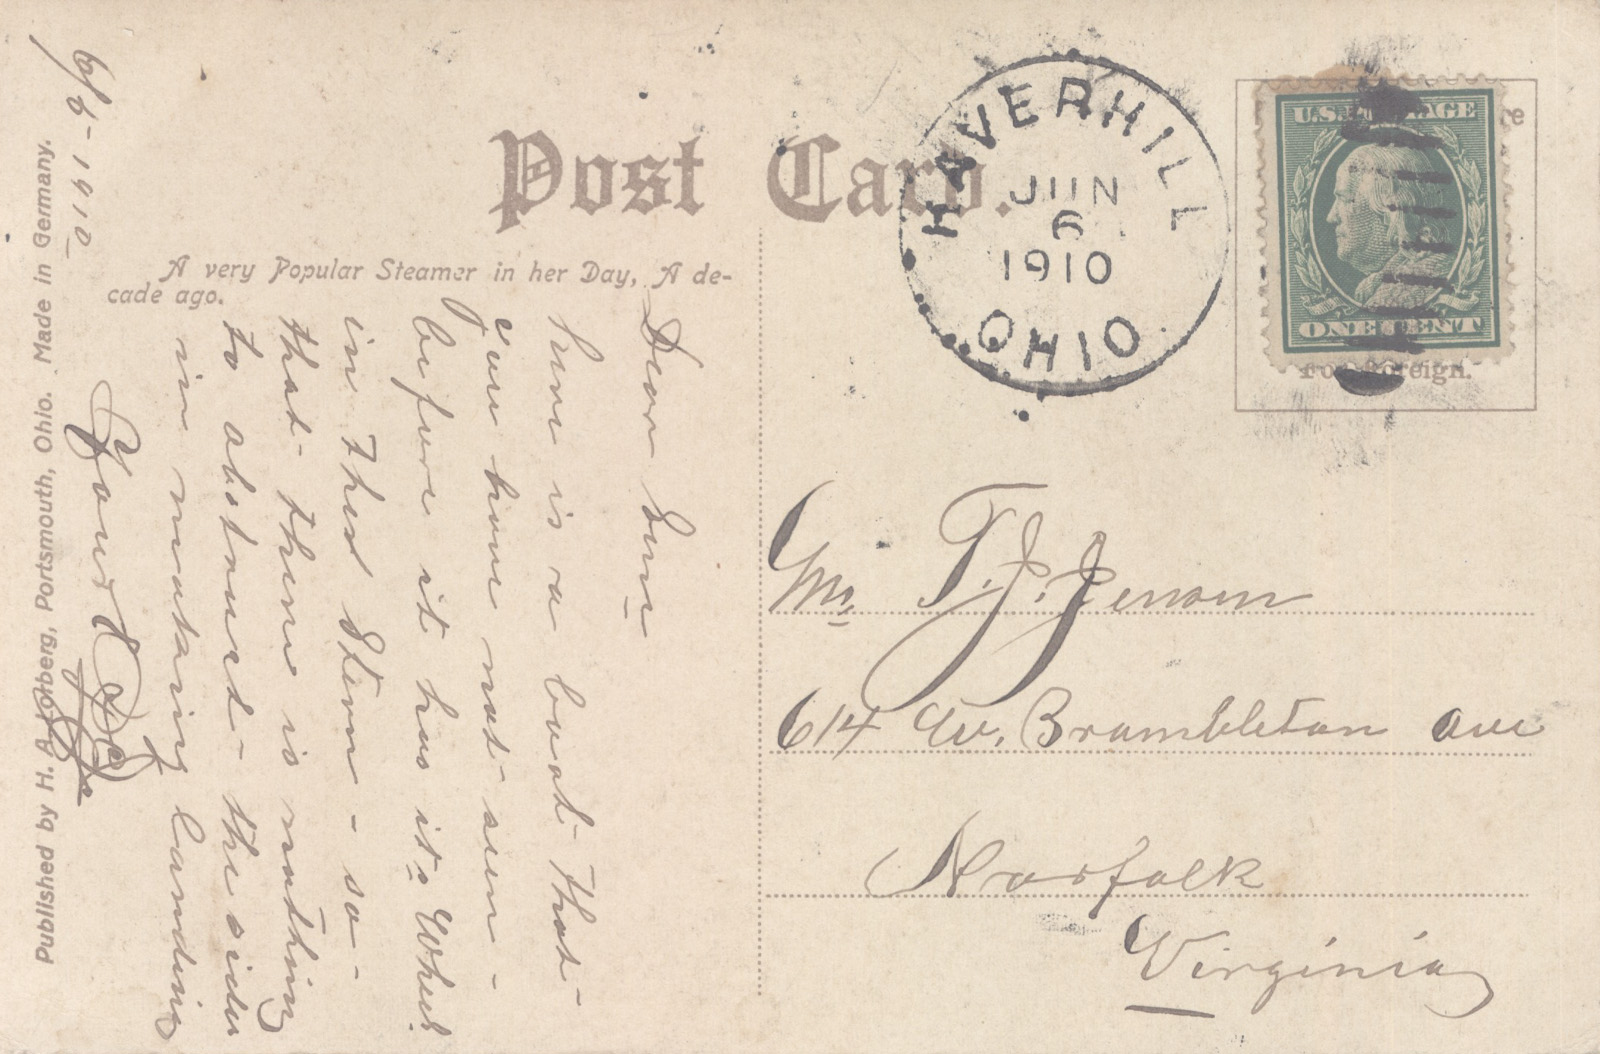 Post Card.
A very Popular Steamer in her Day, A de-
cade ago.
Published by H. A. Lorberg, Portsmouth, Ohio. Made in Germany.
HAVERHILL
JUN
6
1910
OHIO
U.S. POSTAGE
ONE CENT
For Foreign.
6/5-1910
Dear Sir
here is a boat that-
you have not seen-
before it has its Wheel
in ther Stern - so-
that there is nothing
to obstruct- the sides
in making landing
Yours
Mr T. J. Jenson
614 W. Brambleton ave
Norfolk
Virginia